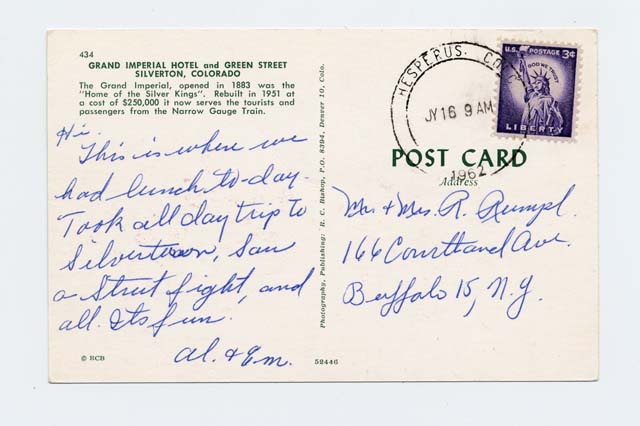 434
GRAND IMPERIAL HOTEL and GREEN STREET
SILVERTON, COLORADO
The Grand Imperial, opened in 1883 was the
"Home of the Silver Kings". Rebuilt in 1951 at
a cost of $250,000 it now serves the tourists and
passengers from the Narrow Gauge Train.
Hi.
This is where we
had lunch to-day.
Took all day trip to
Silvertown, Saw
a Street fight, and
all Its fun.
Al. & Em.
© RCB
52446
Photography, Publishing: R. C. Bishop, P.O. 8394, Denver 10, Colo.
HESPERUS. CO
JY 16 9 AM
1962
U.S. POSTAGE 3¢
IN GOD WE TRUST
LIBERTY
POST CARD
Address
Mr & Mrs. R. Rumpl.
166 Courtland Ave.
Buffalo 15, N.Y.